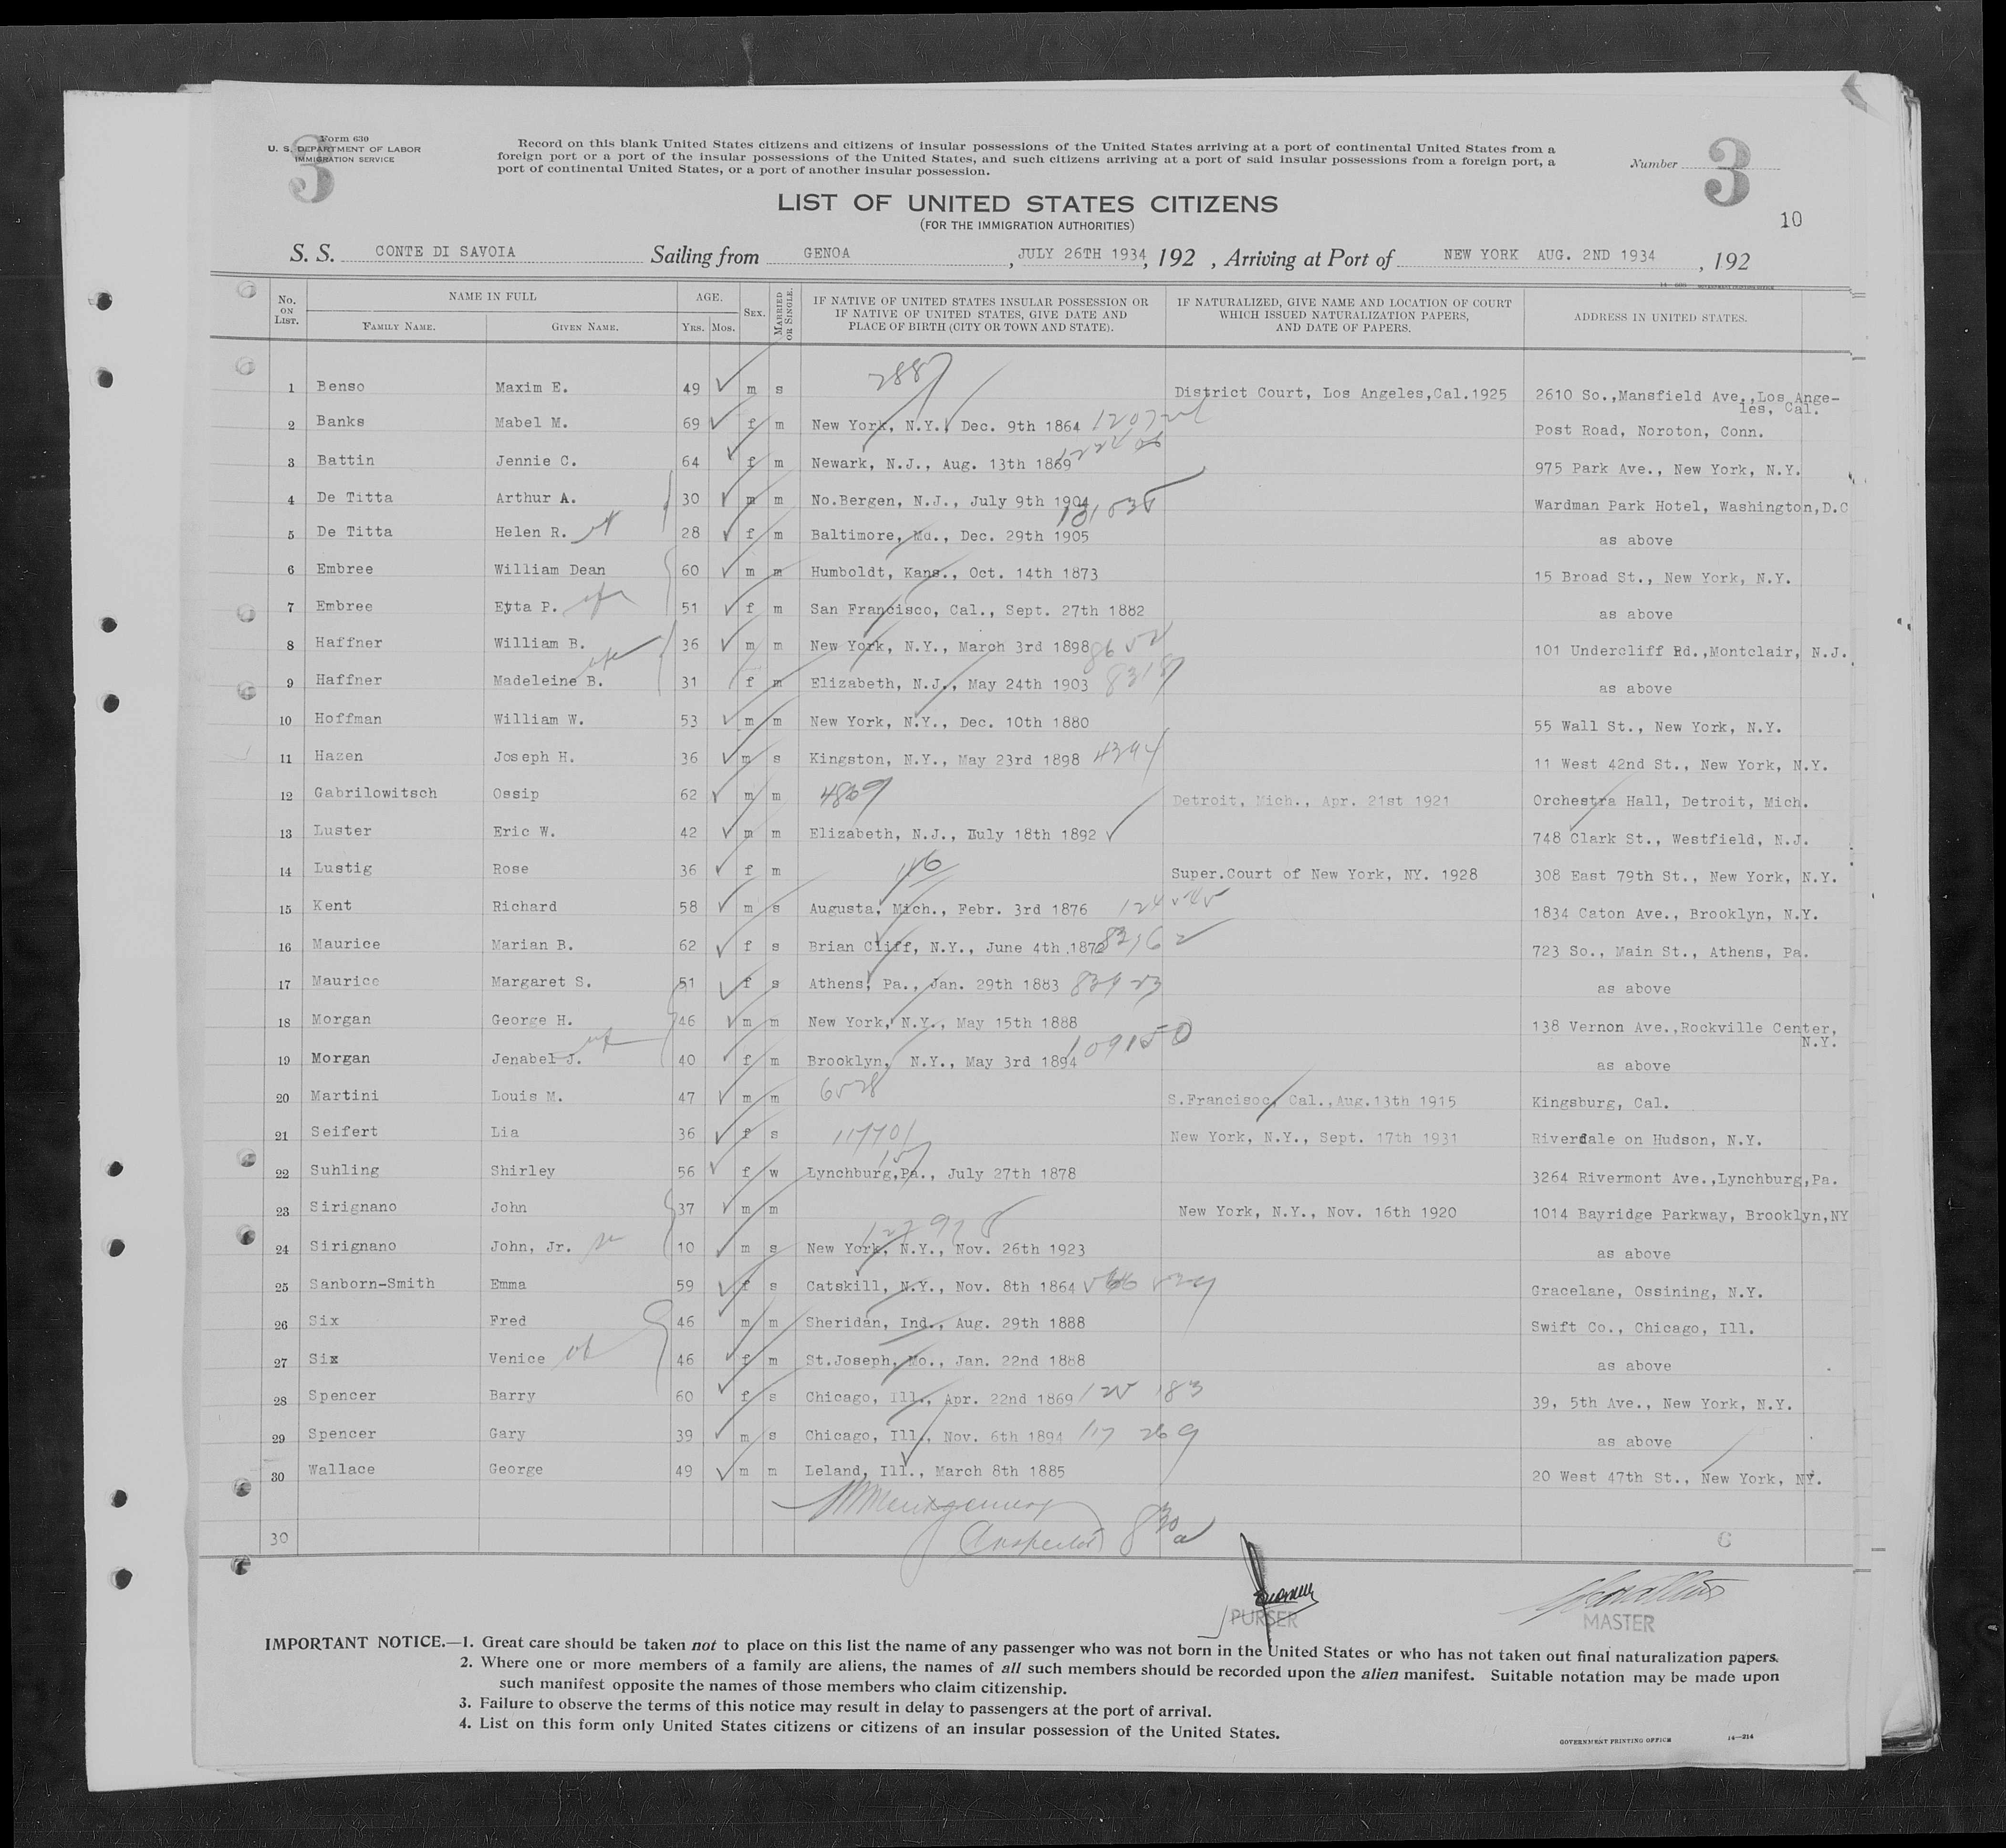 3
Form 630
U. S. DEPARTMENT OF LABOR
IMMIGRATION SERVICE
Record on this blank United States citizens and citizens of insular possessions of the United States arriving at a port of continental United States from a
foreign port or a port of the insular possessions of the United States, and such citizens arriving at a port of said insular possessions from a foreign port, a
port of continental United States, or a port of another insular possession.
Number 3
10
LIST OF UNITED STATES CITIZENS
(FOR THE IMMIGRATION AUTHORITIES)
S. S. CONTE DI SAVOIA Sailing from GENOA, JULY 26TH 1934, 192 , Arriving at Port of NEW YORK AUG. 2ND 1934, 192
No. ON LIST. NAME IN FULL FAMILY NAME. GIVEN NAME. AGE. YRS. MOS. SEX. MARRIED OR SINGLE. IF NATIVE OF UNITED STATES INSULAR POSSESSION OR IF NATIVE OF UNITED STATES, GIVE DATE AND PLACE OF BIRTH (CITY OR TOWN AND STATE). IF NATURALIZED, GIVE NAME AND LOCATION OF COURT WHICH ISSUED NATURALIZATION PAPERS, AND DATE OF PAPERS. ADDRESS IN UNITED STATES.
1 Benso Maxim E. 49 m s 2887 District Court, Los Angeles,Cal.1925 2610 So.,Mansfield Ave.,Los Ange-
les, Cal.
2 Banks Mabel M. 69 f m New York, N.Y., Dec. 9th 1864 Post Road, Noroton, Conn.
3 Battin Jennie C. 64 f m Newark, N.J., Aug. 13th 1869 975 Park Ave., New York, N.Y.
4 De Titta Arthur A. 30 m m No.Bergen, N.J., July 9th 1904 Wardman Park Hotel, Washington,D.C
5 De Titta Helen R. 28 f m Baltimore, Md., Dec. 29th 1905 as above
6 Embree William Dean 60 m m Humboldt, Kans., Oct. 14th 1873 15 Broad St., New York, N.Y.
7 Embree Etta P. 51 f m San Francisco, Cal., Sept. 27th 1882 as above
8 Haffner William B. 36 m m New York, N.Y., March 3rd 1898 101 Undercliff Rd.,Montclair, N.J.
9 Haffner Madeleine B. 31 f m Elizabeth, N.J., May 24th 1903 as above
10 Hoffman William W. 53 m m New York, N.Y., Dec. 10th 1880 55 Wall St., New York, N.Y.
11 Hazen Joseph H. 36 m s Kingston, N.Y., May 23rd 1898 4394 11 West 42nd St., New York, N.Y.
12 Gabrilowitsch Ossip 62 m m 4869 Detroit, Mich., Apr. 21st 1921 Orchestra Hall, Detroit, Mich.
13 Luster Eric W. 42 m m Elizabeth, N.J., July 18th 1892 748 Clark St., Westfield, N.J.
14 Lustig Rose 36 f m Super.Court of New York, NY. 1928 308 East 79th St., New York, N.Y.
15 Kent Richard 58 m s Augusta, Mich., Febr. 3rd 1876 1834 Caton Ave., Brooklyn, N.Y.
16 Maurice Marian B. 62 f s Brian Cliff, N.Y., June 4th 723 So., Main St., Athens, Pa.
17 Maurice Margaret S. 51 f s Athens, Pa., Jan. 29th 1883 as above
18 Morgan George H. 46 m m New York, N.Y., May 15th 1888 138 Vernon Ave.,Rockville Center,
N.Y.
19 Morgan Jenabel J. 40 f m Brooklyn, N.Y., May 3rd 1894 109150 as above
20 Martini Louis M. 47 m m S.Francisoc, Cal.,Aug.13th 1915 Kingsburg, Cal.
21 Seifert Lia 36 f s New York, N.Y., Sept. 17th 1931 Riverdale on Hudson, N.Y.
22 Suhling Shirley 56 f w Lynchburg,Pa., July 27th 1878 3264 Rivermont Ave.,Lynchburg,Pa.
23 Sirignano John 37 m m New York, N.Y., Nov. 16th 1920 1014 Bayridge Parkway, Brooklyn,NY
24 Sirignano John, Jr. 10 m s New York, N.Y., Nov. 26th 1923 as above
25 Sanborn-Smith Emma 59 f s Catskill, N.Y., Nov. 8th 1864 Gracelane, Ossining, N.Y.
26 Six Fred 46 m m Sheridan, Ind., Aug. 29th 1888 Swift Co., Chicago, Ill.
27 Six Venice 46 f m St.Joseph, Mo., Jan. 22nd 1888 as above
28 Spencer Barry 60 f s Chicago, Ill., Apr. 22nd 1869 39, 5th Ave., New York, N.Y.
29 Spencer Gary 39 m s Chicago, Ill., Nov. 6th 1894 117 269 as above
30 Wallace George 49 m m Leland, Ill., March 8th 1885 20 West 47th St., New York, NY.
Montgomery
Inspector 830 a
30
PURSER
MASTER
IMPORTANT NOTICE.—1. Great care should be taken not to place on this list the name of any passenger who was not born in the United States or who has not taken out final naturalization papers.
2. Where one or more members of a family are aliens, the names of all such members should be recorded upon the alien manifest. Suitable notation may be made upon
such manifest opposite the names of those members who claim citizenship.
3. Failure to observe the terms of this notice may result in delay to passengers at the port of arrival.
4. List on this form only United States citizens or citizens of an insular possession of the United States.
GOVERNMENT PRINTING OFFICE 14—214